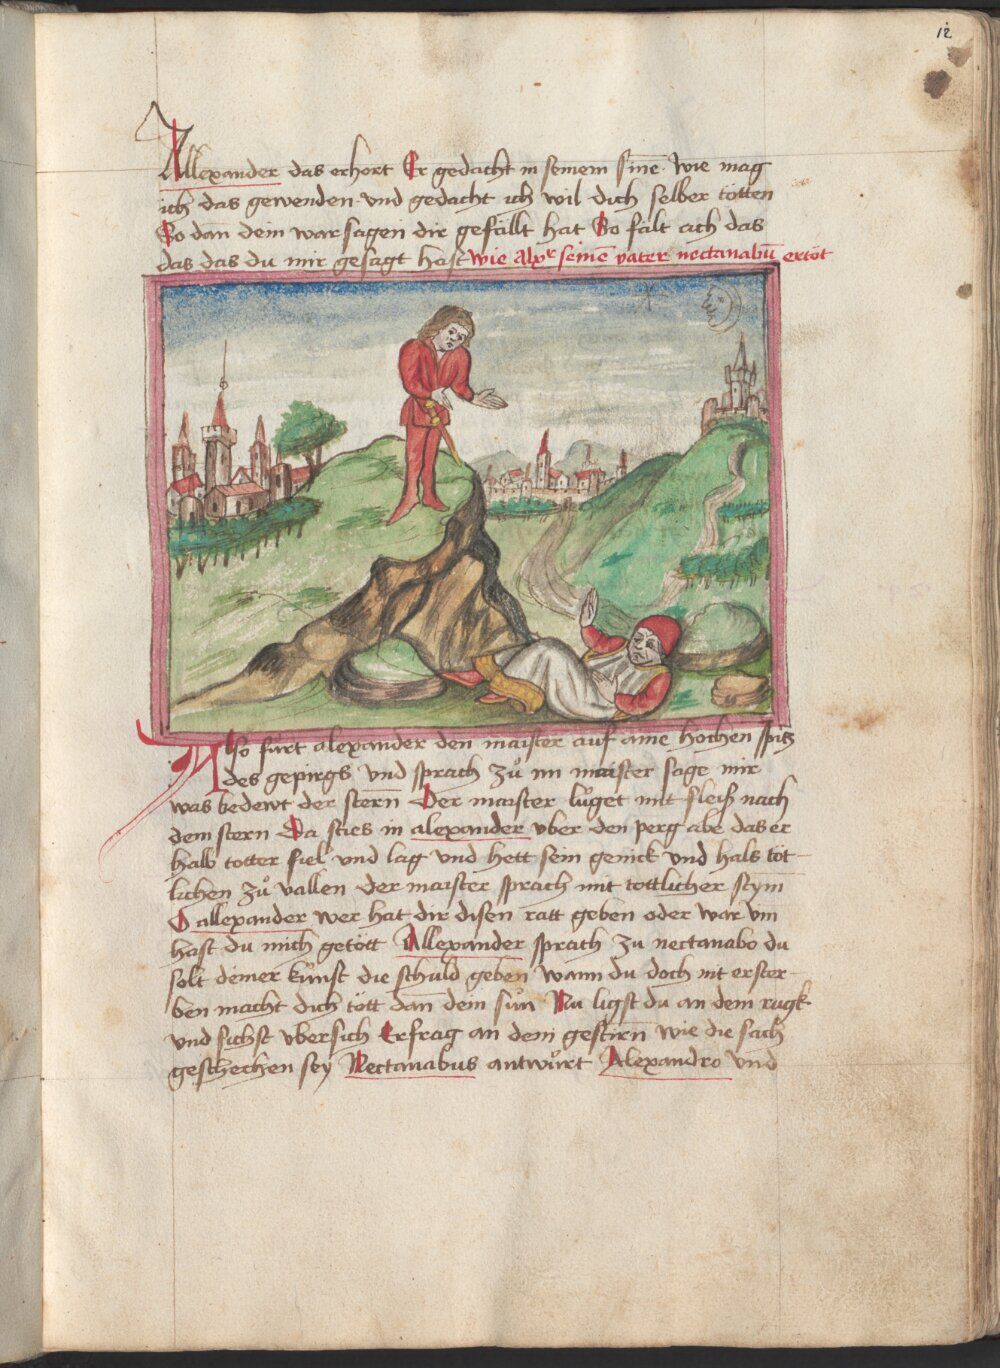 12
Allexander das erhort Er gedacht in seinem sine wie mag
ich das gewenden und gedacht ich wil dich selber tötten
So dan dein warsagen dir gefällt hat So fält ach das
das das du mir gesagt hast wie Alxr seinē vater nectanabū ertöt
Also fürt alexander den maister auf aine hochen spitz
des gepirgs und sprach zů im maister sage mir
was bedewt der stern̄ Der maister lůget mit fleiß nach
dem stern Da sties in alexander vber den perg abe das er
halb totter fiel und lag und hett sein genick und hals töt-
lichen zů vallen der maister sprach mit tottlicher stym
O allexander wer hat dir disen ratt geben oder war vm
hast du mich getött Allexander sprach zu nectanabo du
solt deiner kunst die schuld geben wann du doch nit erster-
ben macht dich tött dan̄ dein sůn Nu ligst du an dem rugk
und sichst vbersich Erfrag an dem gestirn wie die sach
geschechen sey Nectanabus antwůrt Alexandro und